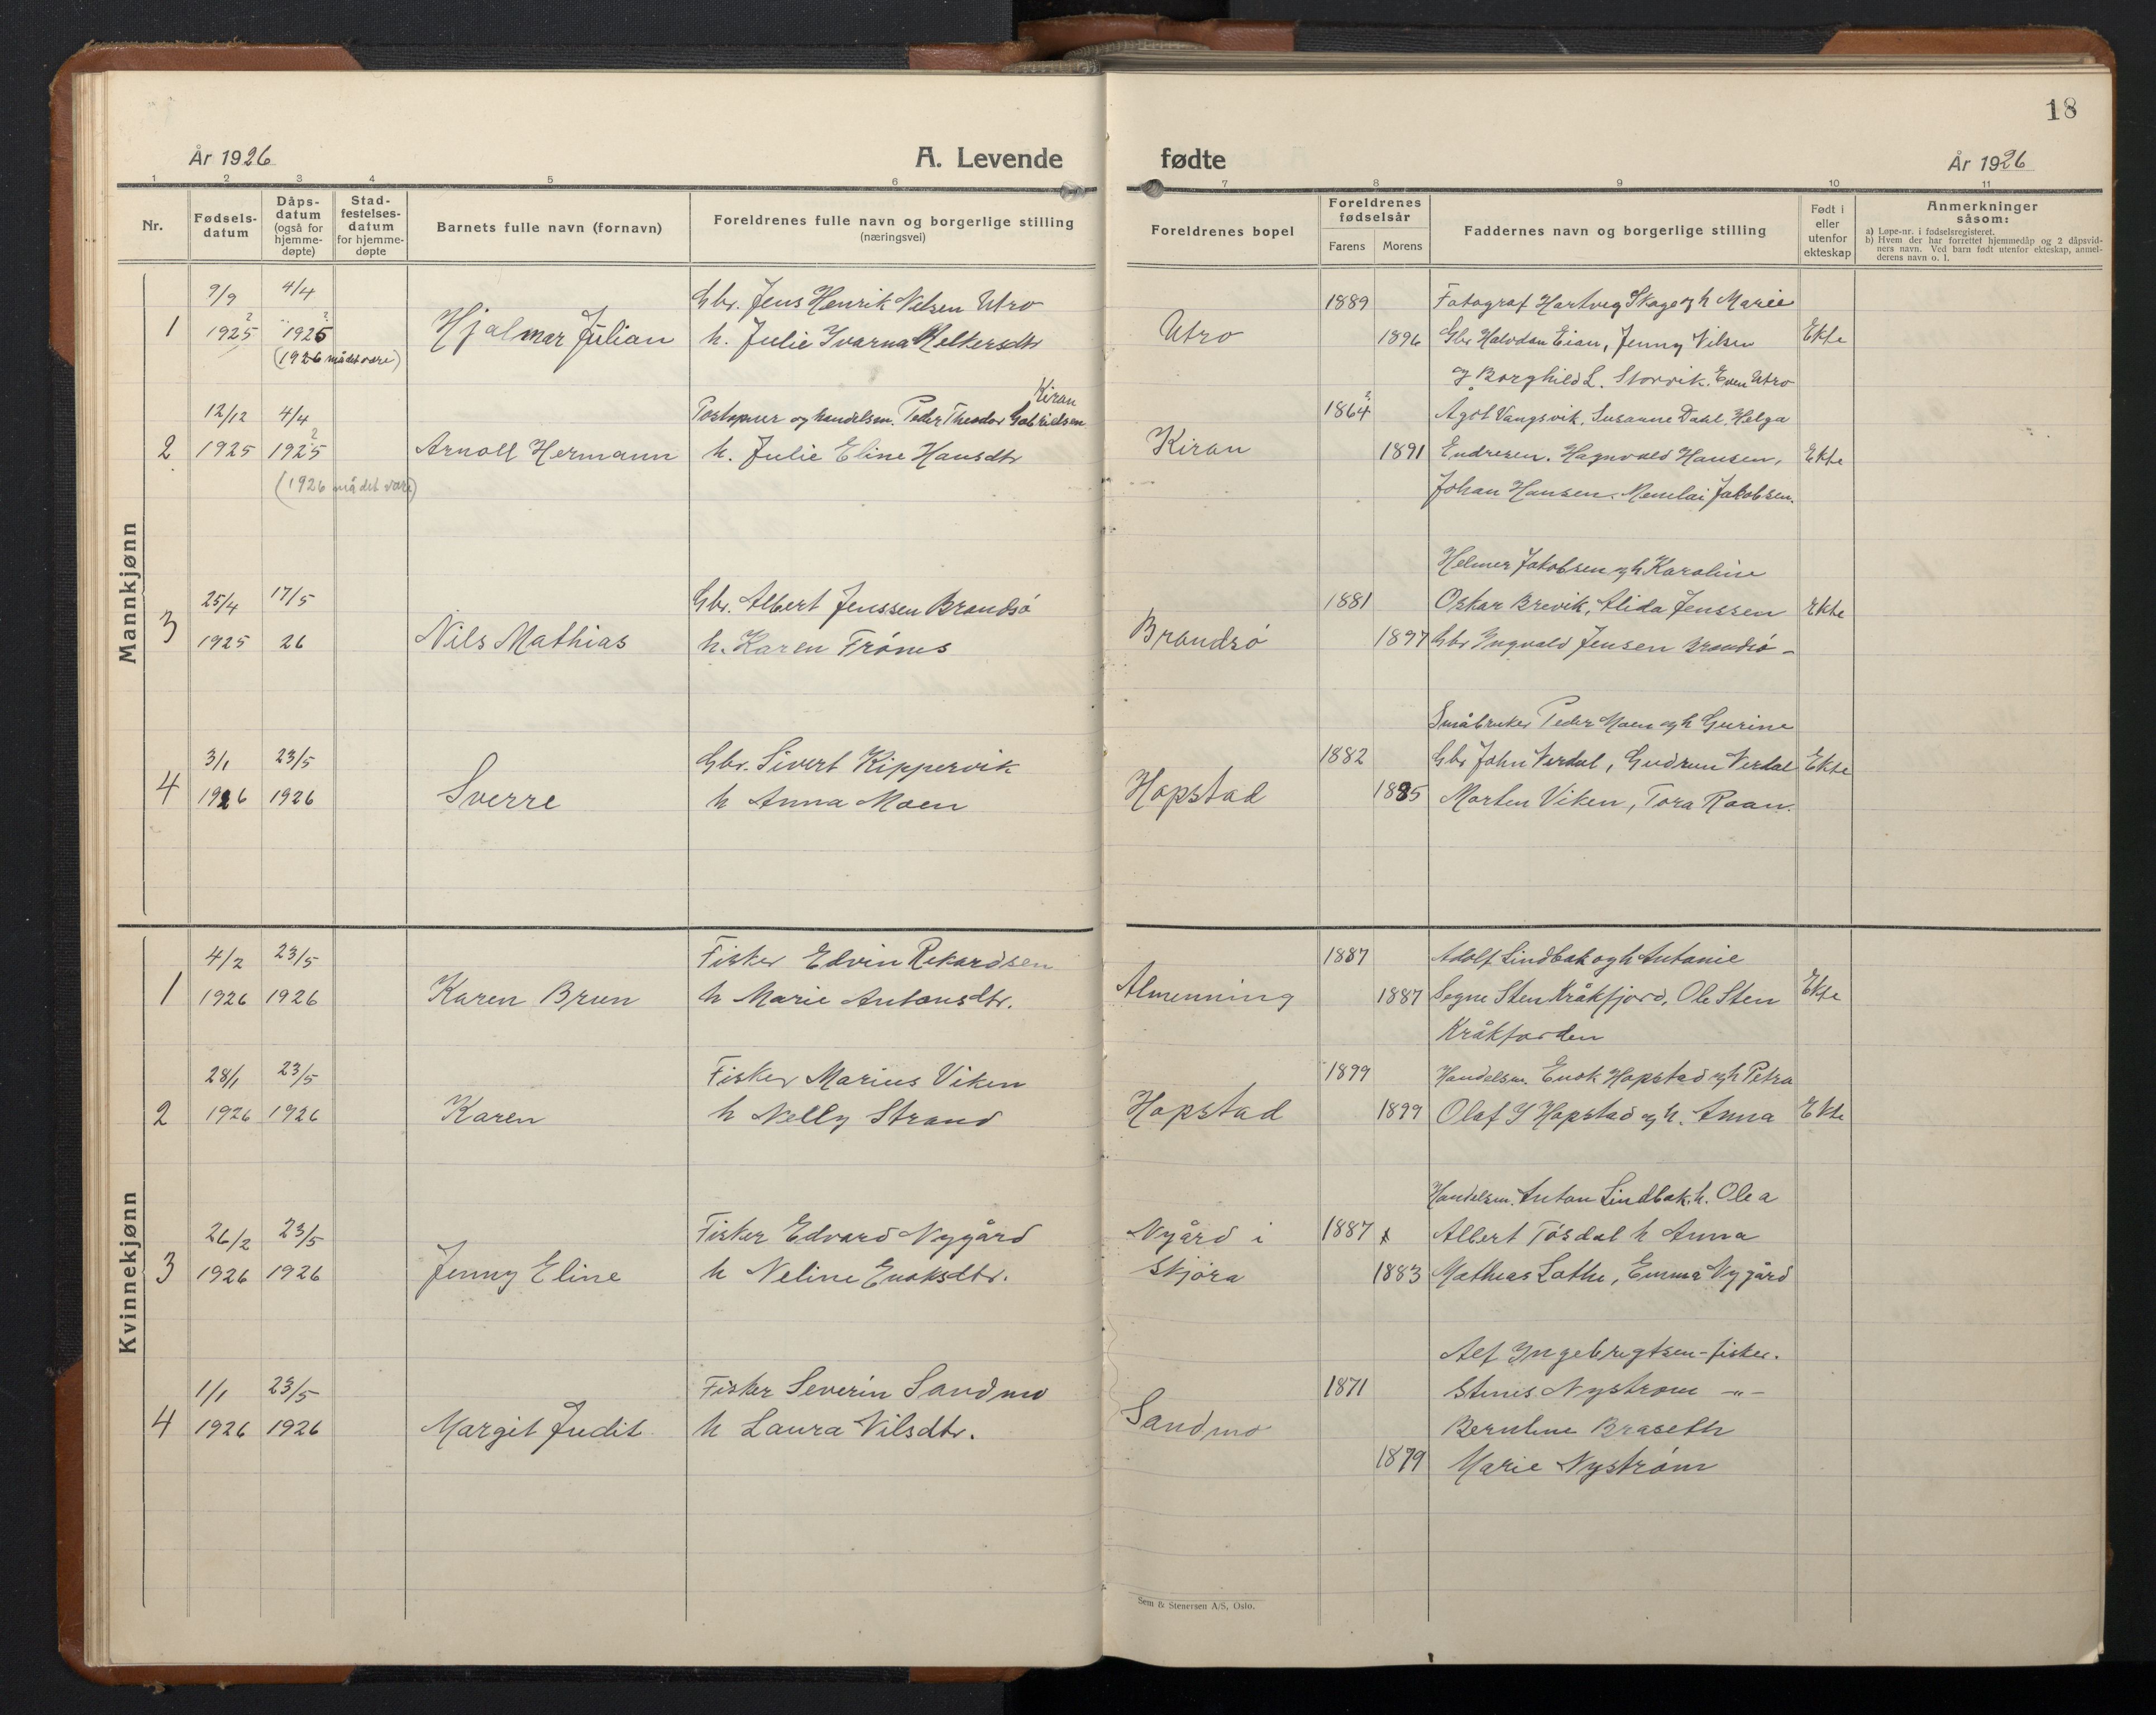 18
År 1926
A. Levende
fødte
År 1926
1 2 3 4 5 6 7 8 9 10 11
Nr.
Fødsels-
datum
Dåps-
datum
(også for
hjemme-
døpte)
Stad-
festelses-
datum
for hjemme-
døpte
Barnets fulle navn (fornavn)
Foreldrenes fulle navn og borgerlige stilling
(næringsvei)
Foreldrenes bopel
Foreldrenes
fødselsår
Farens Morens
Faddernes navn og borgerlige stilling
Født i
eller
utenfor
ekteskap
Anmerkninger
såsom:
a) Løpe-nr. i fødselsregisteret.
b) Hvem der har forrettet hjemmedåp og 2 dåpsvid-
ners navn. Ved barn født utenfor ekteskap, anmel-
derens navn o. l.
Mannkjønn
9/9 4/4 Gbr. Jens Henrik Nilsen Utro 1889 Fotograf Hartvig Skage og h Marie
1 1925 ? 1925 ? Hjalmar Julian h. Julie Ivarna Melkersdtr Utro 1896 Gbr Halvdan Eian, Jenny Nilsen Ekte
(1926 må det være) og Borghild L. Storvik. Even Utro
Kiran
12/12 4/4 Postopner og handelsm. Peder Theodor Gabrielsen 1864 ? Ågot Vangsvik, Susanne Dahl, Helga
2 1925 1925 ? Arnoll Hermann h. Julie Eline Hansdtr Kiran 1891 Endresen. Hagnvald Hansen, Ekte
(1926 må det være) Johan Hansen. Menelai Jakobsen.
Helmer Jakobsen og h Karoline
25/4 17/5 Gbr. Albert Jenssen Brandsø 1881 Oskar Brevik, Alida Jenssen Ekte
3 1925 26 Nils Mathias h. Karen Frønes Brandsø 1897 Gbr Yngvald Jensen Brandsø -
Småbruker Peder Moen og h Gurine
3/1 23/5 Gbr. Sivert Kippervik 1882 Gbr John Verdal, Gudrun Verdal Ekte
4 1926 1926 Sverre h Anna Moen Hopstad 1885 Morten Viken, Tora Roan.
Kvinnekjønn
4/2 23/5 Fisker Edvin Rekardsen 1887 Adolf Lindbak og h Antonie
1 1926 1926 Karen Brun h Marie Antonsdtr. Almenning 1887 Segne Sten Kråkfjord, Ole Sten Ekte
Kråkfjorden
28/1 23/5 Fisker Marius Viken 1899 Handelsm. Enok Hopstad og h Petra
2 1926 1926 Karen h Nelly Strand Hopstad 1899 Olaf J Hopstad og h. Anna Ekte
Handelsm. Anton Lindbak. h. Olea
26/2 23/5 Fisker Edvard Nygård Nygård i 1887 Albert Tøsdal h Anna
3 1926 1926 Jenny Eline h Neline Enoksdtr. Skjøra 1883 Mathias Lothe, Emma Nygård
Alf Ingebrigtsen - fisker.
1/1 23/5 Fisker Severin Sandmo 1871 Stines Nystrøm -"-
4 1926 1926 Margit Judit h Laura Nilsdtr. Sandmo Berntine Braseth
1879 Marie Nystrøm
Sem & Stenersen A/S, Oslo.